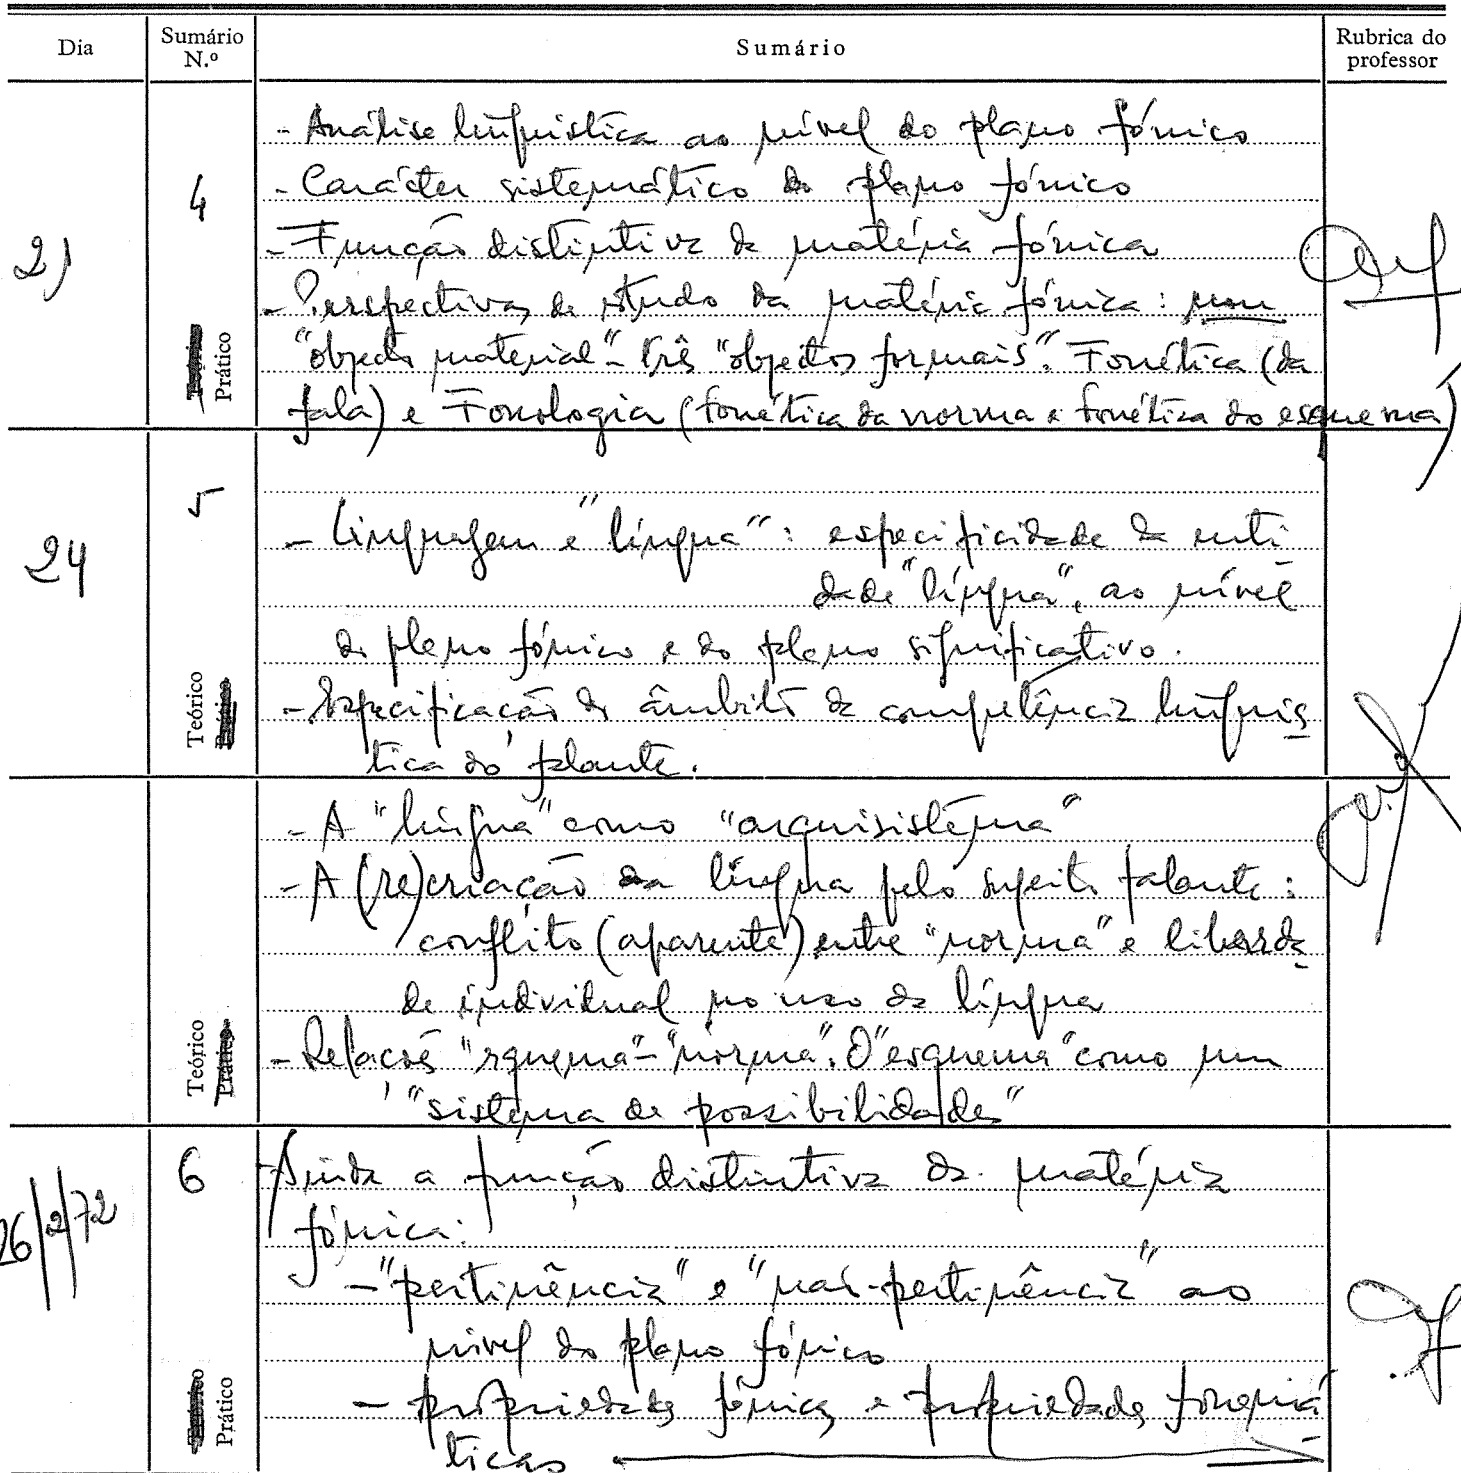 Dia
Sumário N.º
Sumário
Rubrica do professor
21
4
Prático
- Análise linguística ao nível do plano fónico
- Carácter sistemático do plano fónico
- Função distintiva da matéria fónica
- Perspectivas de estudo da matéria fónica: num
"objecto material" - três "objectos formais". Fonética (da
fala) e Fonologia (fonética da norma e fonética do esquema)
24
5
Teórico
Prático
- Linguagem e "língua": especificidade da enti
dade "língua", ao nível
do plano fónico e do plano significativo.
- Especificação do âmbito da competência linguís
tica do falante.
Teórico
Prático
- A "língua" como "arquisistema"
- A (re)criação da língua pelo sujeito falante:
conflito (aparente) entre "norma" e liberda
de individual no uso da língua
- Relações "esquema" - "norma". O "esquema" como um
"sistema de possibilidades"
26/2/72
6
Prático
- Ainda a função distintiva da matéria
fónica:
- "pertinência" e "não-pertinência" ao
nível do plano fónico
- propriedades fónicas e propriedades fonemá
ticas